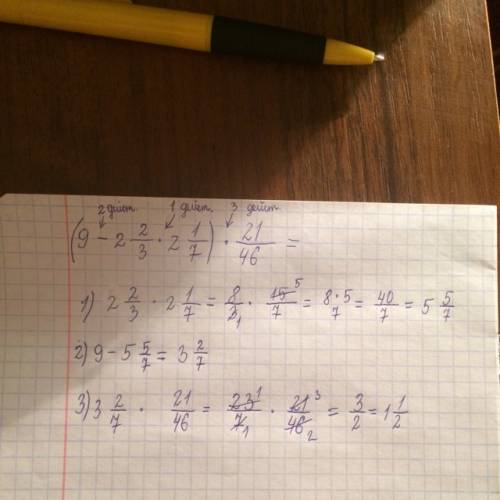 2 дейст. 1 дейст. 3 дейст.
(9 - 2 2/3 · 2 1/7) · 21/46 =
1) 2 2/3 · 2 1/7 = 8/3 1 · 15 5/7 = 8·5/7 = 40/7 = 5 5/7
2) 9 - 5 5/7 = 3 2/7
3) 3 2/7 · 21/46 = 23 1/7 1 · 21 3/46 2 = 3/2 = 1 1/2